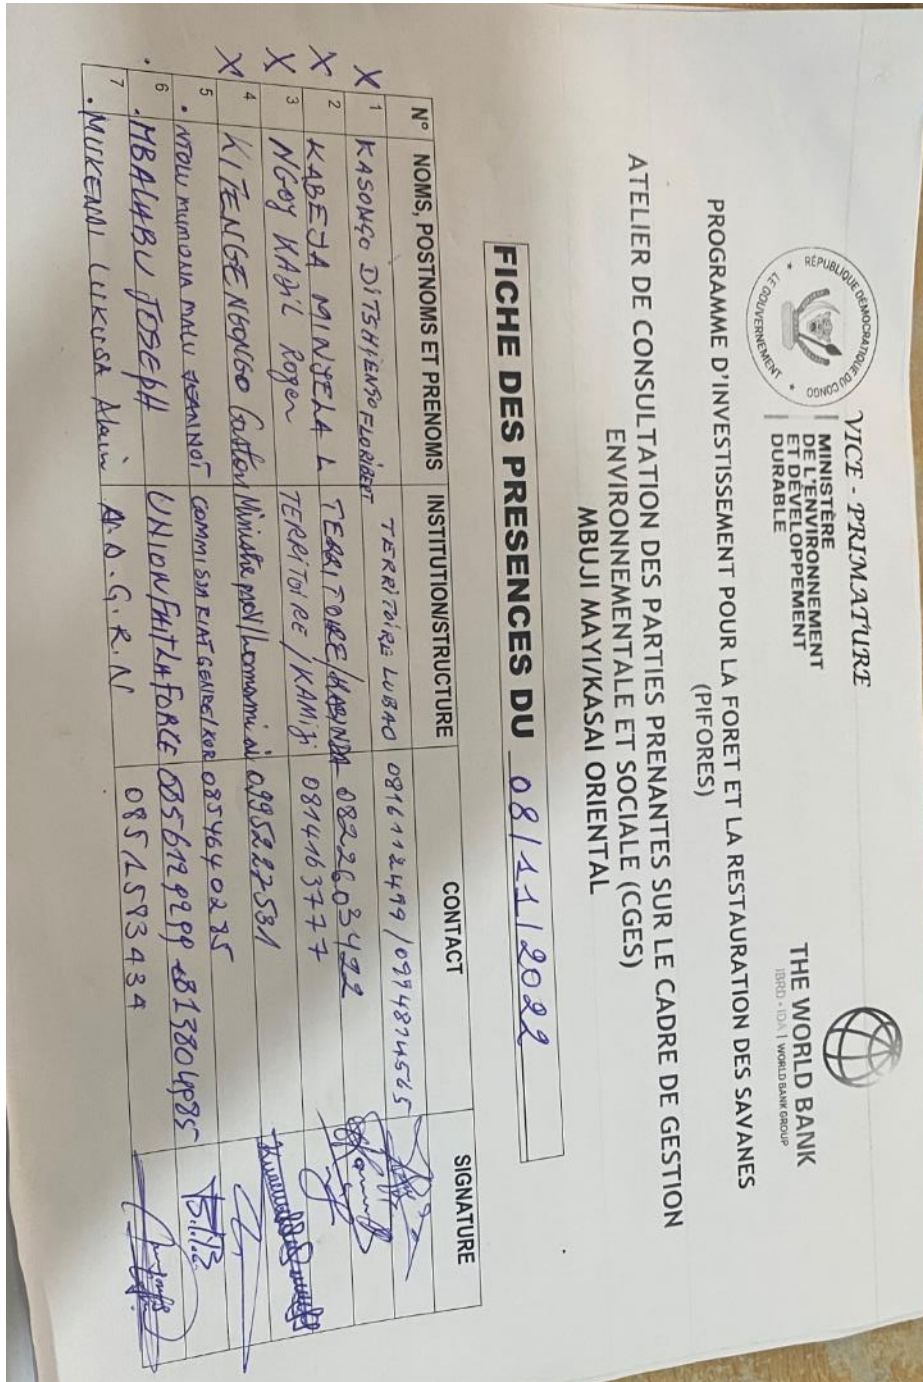 VICE - PRIMATURE
RÉPUBLIQUE DÉMOCRATIQUE DU CONGO
LE GOUVERNEMENT
MINISTÈRE
DE L'ENVIRONNEMENT
ET DÉVELOPPEMENT
DURABLE
THE WORLD BANK
IBRD • IDA | WORLD BANK GROUP
PROGRAMME D'INVESTISSEMENT POUR LA FORET ET LA RESTAURATION DES SAVANES
(PIFORES)
ATELIER DE CONSULTATION DES PARTIES PRENANTES SUR LE CADRE DE GESTION
ENVIRONNEMENTALE ET SOCIALE (CGES)
MBUJI MAYI/KASAI ORIENTAL
FICHE DES PRESENCES DU 08/11/2022
N° NOMS, POSTNOMS ET PRENOMS INSTITUTION/STRUCTURE CONTACT SIGNATURE
X 1 KASONGO DITSHIENSO FLORIBERT TERRITOIRE LUBAO 0816112499 / 0994874565
X 2 KABEJA MINJELA L TERRITOIRE/KABINDA 0822603422
X 3 NGOY KADIL Roger TERRITOIRE/KAMIJI 0814163777
X 4 KITENGE NGONGO Gaston Ministre prov/Lomami 0995227581
5 NTOLU MUMONA MALU COMMISSARIAT GENRE/KOR 0854640285
6 MBALABU JOSEPH UNION FAIT LA FORCE
7 MUKENDI LUKUSA Alain A.D.G.R.N 0851583434